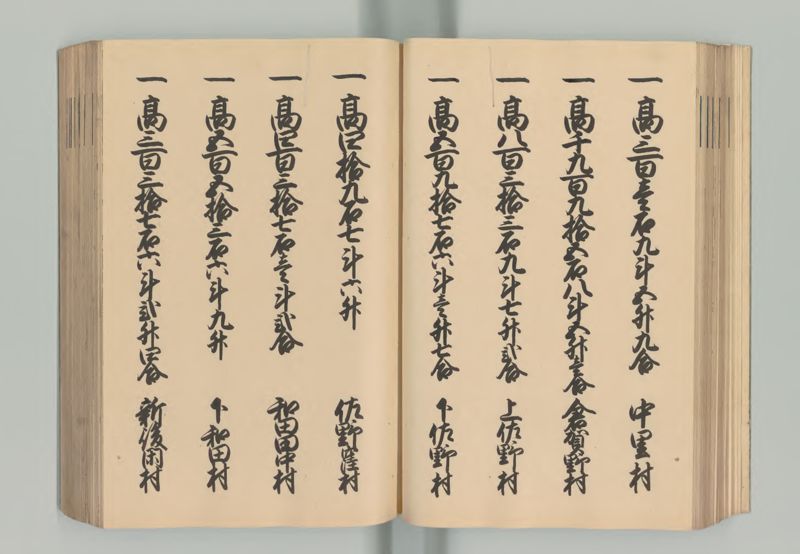 一 高三百壱石九斗五升九合 中里村
一 高千九百九拾五石八斗五升壱合 倉賀野村
一 高八百三拾三石九斗七升弐合 上佐野村
一 高五百九拾七石六斗壱升七合 下佐野村
一 高四拾九石七斗六升 佐野窪村
一 高四百三拾七石壱斗弐合 和田田中村
一 高五百五拾三石六斗九升 下和田村
一 高三百三拾七石六斗弐升四合 新後閑村